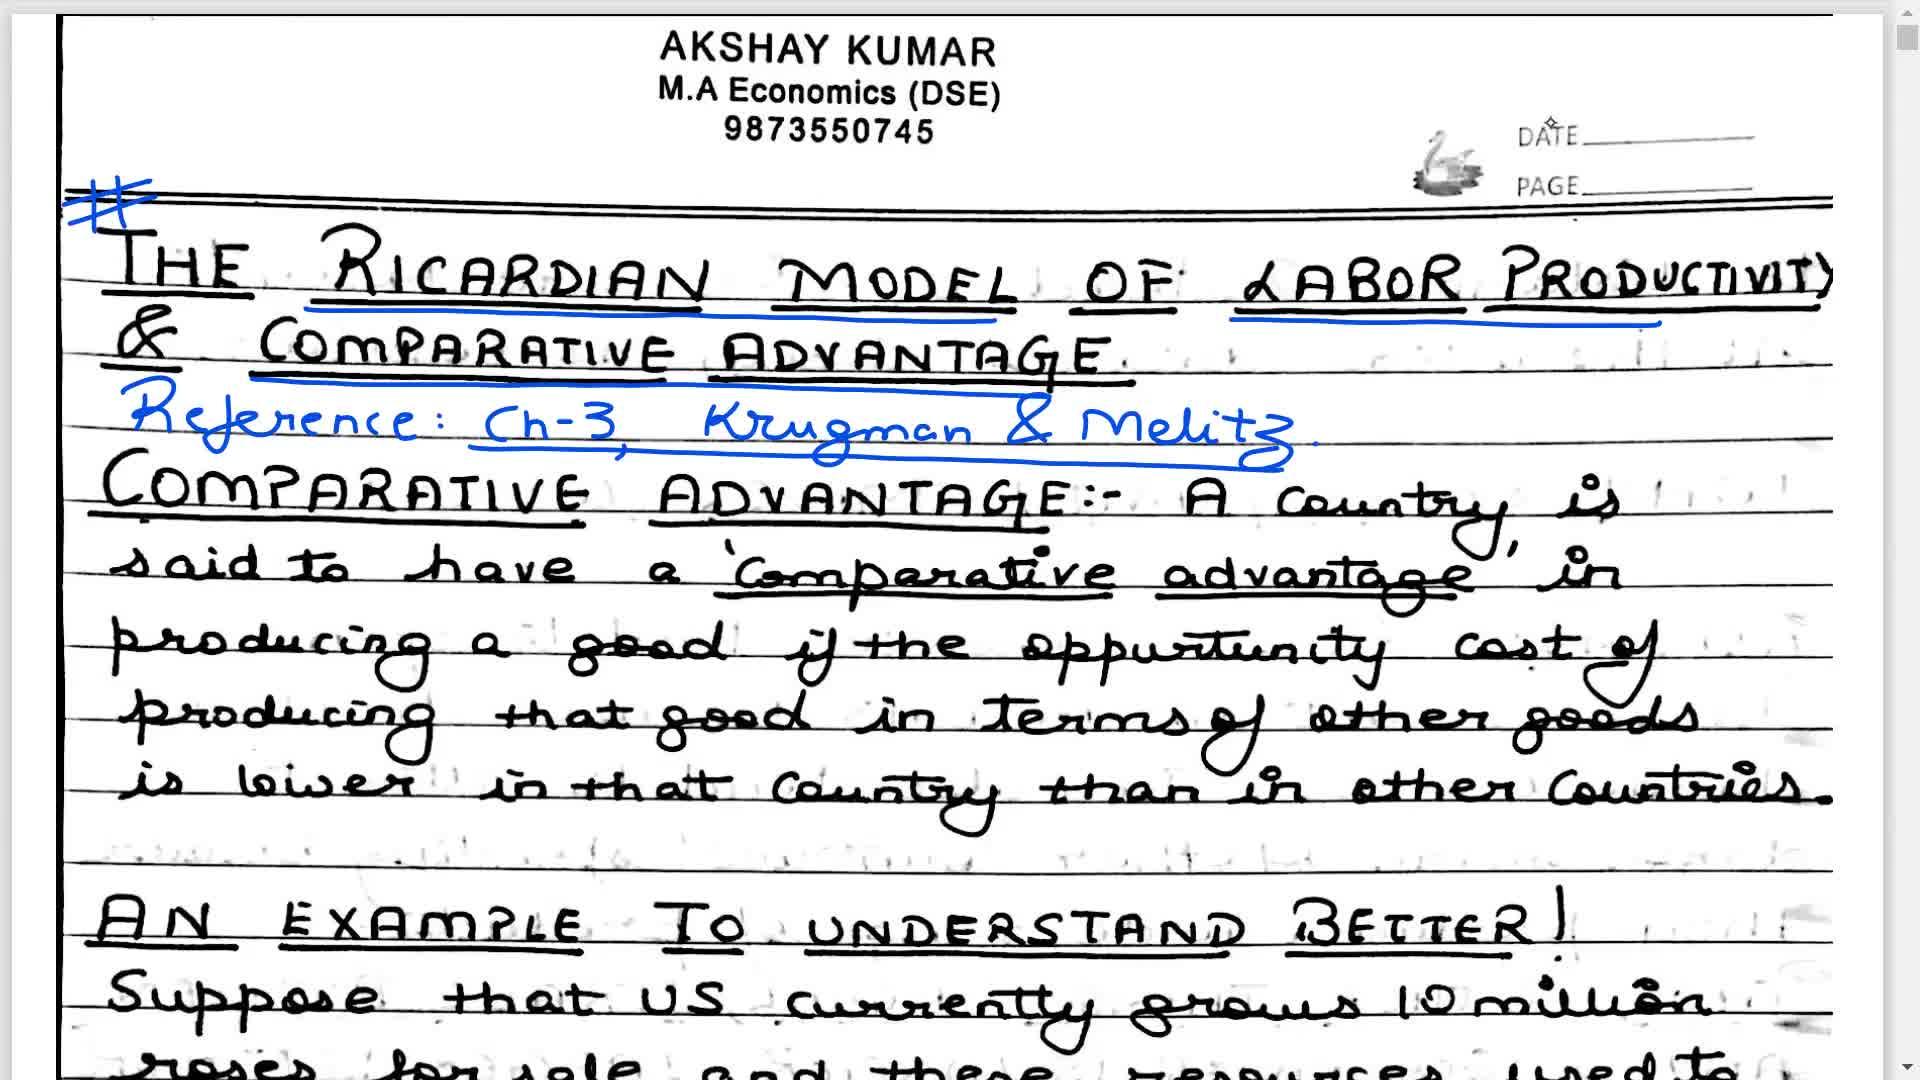 AKSHAY KUMAR
M.A Economics (DSE)
9873550745
DATE
PAGE
#
THE RICARDIAN MODEL OF LABOR PRODUCTIVITY
& COMPARATIVE ADVANTAGE.
Reference: Ch-3, Krugman & Melitz.
COMPARATIVE ADVANTAGE:- A country is
said to have a 'comparative advantage' in
producing a good if the oppurtunity cost of
producing that good in terms of other goods
is lower in that country than in other countries.
AN EXAMPLE TO UNDERSTAND BETTER!
Suppose that US currently grows 10 million
roses for sale and these resources used to